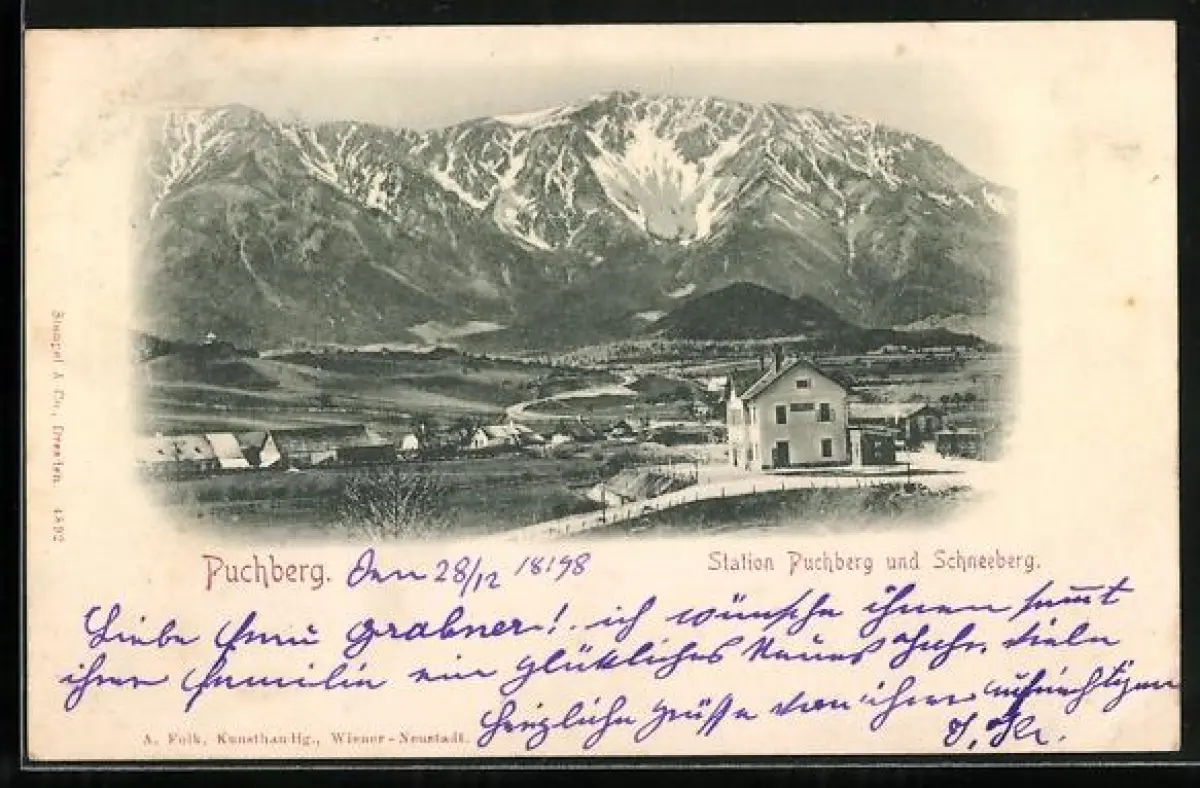 Puchberg. Den 28/12 18198
Station Puchberg und Schneeberg.
Liebe Frau Grabner! ich wünsche ihnen samt
ihrer Familie ein glückliches Neues Jahr. Viele
herzliche Grüsse von ihrer aufrichtigen
A. Folk, Kunsthandlg., Wiener-Neustadt.
Stengel & Co., Dresden. 4892